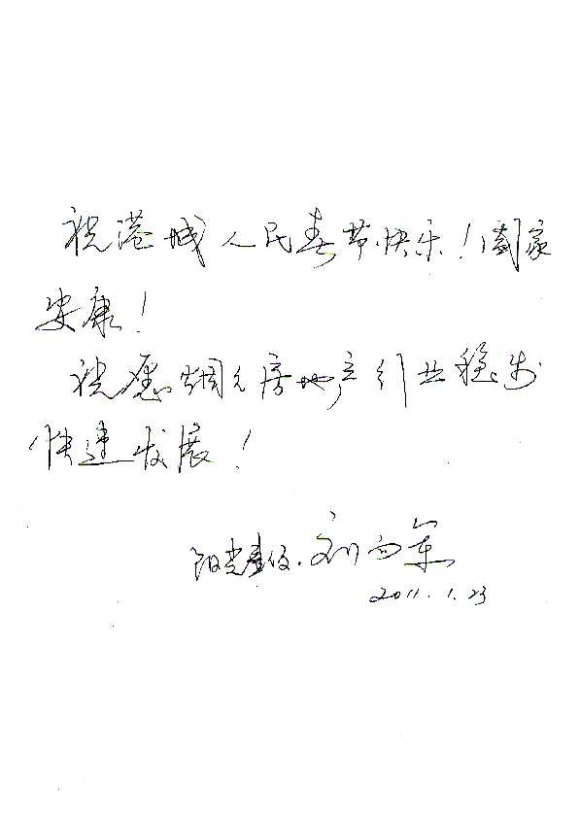 祝港城人民春节快乐！阖家
安康！
祝愿烟台房地产行业稳步
快速发展！
阳光壹佰.刘向东
2011.1.23